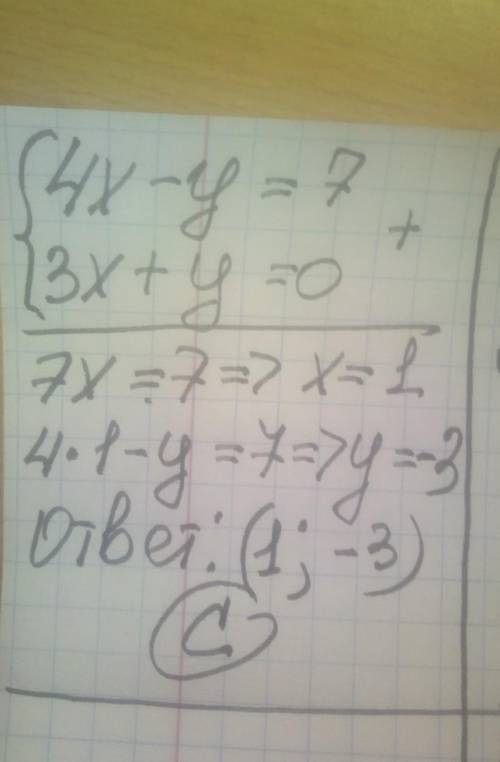 {4x - y = 7
3x + y = 0 +
7x = 7 => x = 1
4·1 - y = 7 => y = -3
Ответ: (1; -3)
C